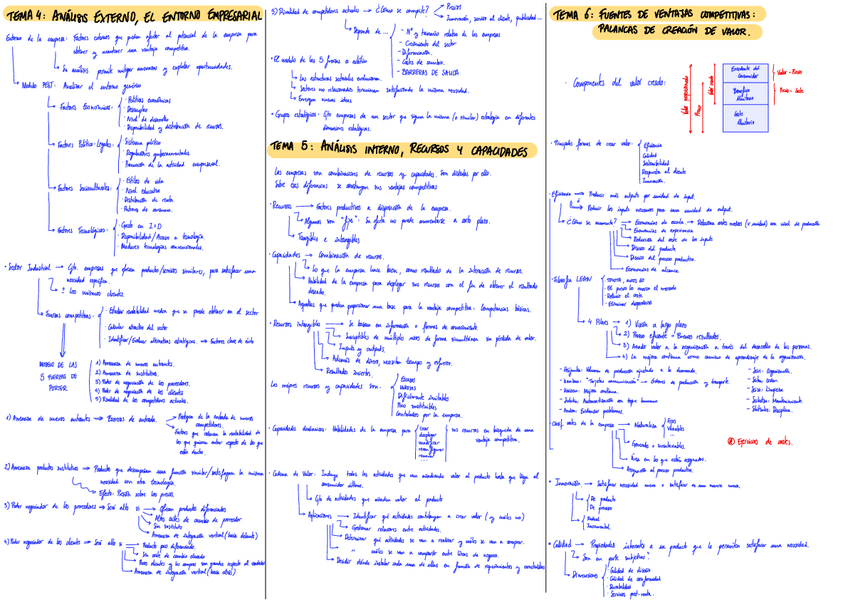 TEMA 4: ANÁLISIS EXTERNO, EL ENTORNO EMPRESARIAL
Entorno de la empresa: Factores externos que pueden afectar al potencial de la empresa para
obtener y mantener una ventaja competitiva.
Su análisis permite mitigar amenazas y explotar oportunidades.
Modelo PEST: Analizar el entorno genérico
Factores Económicos:
Políticas económicas
Desempleo
Nivel de desarrollo
Disponibilidad y distribución de recursos.
Factores Político-Legales:
Sistema político
Regulaciones gubernamentales
Promoción de la actividad empresarial.
Factores Socioculturales:
Estilos de vida
Nivel educativo
Distribución de renta
Patrones de consumo.
Factores Tecnológicos:
Gasto en I+D
Disponibilidad/Acceso a tecnología
Madurez tecnologías convencionales.
Sector Industrial → Cjto. empresas que ofrecen productos/servicios similares, para satisfacer una
necesidad específica.
± Los mismos clientes.
Fuerzas competitivas:
Estudiar rentabilidad media que se puede obtener en el sector
Calcular atractivo del sector
Identificar/Evaluar alternativas estratégicas → Factores clave de éxito
MODELO DE LAS
5 FUERZAS DE
PORTER
1) Amenaza de nuevos entrantes.
2) Amenaza de sustitutivos.
3) Poder de negociación de los proveedores.
4) Poder de negociación de los clientes
5) Rivalidad de los competidores actuales.
1) Amenaza de nuevos entrantes → Barreras de entrada.
Protegen de la entrada de nuevos
competidores.
Factores que reducen la rentabilidad de
los que quieren entrar respecto de los que
están dentro.
2) Amenaza productos sustitutivos → Productos que desempeñan una función similar/satisfagan la misma
necesidad con otra tecnología.
Efecto: Presión sobre los precios.
3) Poder negociador de los proveedores → Será alto si
Ofrecen productos diferenciados
Altos costes de cambio de proveedor
Sin sustitutos
Amenaza de integración vertical (hacia delante)
4) Poder negociador de los clientes → Será alto si
Producto poco diferenciado.
Sin coste de cambio elevado
Pocos clientes y las compras son grandes respecto al vendedor
Amenaza de integración vertical (hacia atrás)
5) Rivalidad de competidores actuales → ¿Cómo se compite?
Precios
Innovación, servicio al cliente, publicidad...
Depende de...
Nº y tamaño relativo de las empresas
Crecimiento del sector
Diferenciación.
Costes de cambio.
BARRERAS DE SALIDA
El modelo de las 5 fuerzas es estático
Las estructuras sectoriales evolucionan.
Sectores no relacionados terminan satisfaciendo la misma necesidad.
Emergen nuevas ideas
Grupos estratégicos: Cjto empresas de un sector que siguen la misma (o similar) estrategia en diferentes
dimensiones estratégicas.
TEMA 5: ANÁLISIS INTERNO, RECURSOS Y CAPACIDADES
Las empresas son combinaciones de recursos y capacidades. Son distintas por ello.
Sobre esas diferencias se construyen sus ventajas competitivas
Recursos → Factores productivos a disposición de la empresa.
Algunos son "fijos". Su oferta no puede aumentarse a corto plazo.
Tangibles e intangibles
Capacidades → Combinación de recursos.
Lo que la empresa hace bien, como resultado de la interacción de recursos.
Habilidad de la empresa para desplegar sus recursos con el fin de obtener el resultado
deseado.
Aquellas que pueden proporcionar una base para la ventaja competitiva: Competencias básicas.
Recursos Intangibles
Se basan en información o formas de conocimiento
Susceptibles de múltiples usos de forma simultánea sin pérdida de valor.
Inputs y outputs.
Además de dinero, necesitan tiempo y esfuerzo.
Resultados inciertos.
Los mejores recursos y capacidades son:
Escasos
Valiosos
Difícilmente imitables
Poco sustituibles
Controlados por la empresa.
Capacidades dinámicas: Habilidades de la empresa para
crear
desplegar
modificar
reconfigurar
sus recursos en búsqueda de una
ventaja competitiva.
Cadena de Valor: Incluye todas las actividades que van añadiendo valor al producto hasta que llega al
consumidor último.
Cjto de actividades que añaden valor al producto
Aplicaciones → Identificar qué actividades contribuyen a crear valor (y cuáles no)
Gestionar relaciones entre actividades.
Determinar qué actividades se van a realizar y cuáles se van a comprar.
" cuáles se van a compartir entre líneas de negocio.
Decidir dónde instalar cada una de ellas en función de requerimientos y
TEMA 6: FUENTES DE VENTAJAS COMPETITIVAS:
PALANCAS DE CREACIÓN DE VALOR.
Componentes del valor creado:
Valor proporcionado
Precio
Valor creado
Excedente del
Consumidor
Beneficio
Unitario
Coste
Unitario
Valor - Precio
Precio - Coste
Principales formas de crear valor:
Eficiencia
Calidad
Sostenibilidad
Respuesta al cliente
Innovación.
Eficiencia → Producir más outputs por unidad de input.
Reducir los inputs necesarios para cada unidad de output.
¿Cómo se aumenta?
Economías de escala → Relaciona costes medios (x unidad) con nivel de producción
Economías de experiencia
Reducción del coste de los inputs
Diseño del producto
Diseño del proceso productivo.
Economías de alcance
Filosofía LEAN
El precio lo marca el mercado
Reducir el coste
Eliminar desperdicios
4 Pilares
1) Visión a largo plazo
2) Proceso eficiente → Buenos resultados.
3) Añadir valor a la organización a través del desarrollo de las personas.
4) La mejora continua como camino de aprendizaje de la organización.
Kaizen: Mejora continua.
Jidoka: Automatización con toque humano
Seiton: orden
Seiso: Limpieza
Shitsuke: Disciplina.
Clasif. costes de la empresa
Naturaleza
Fijos
Variables
Ejercicios de costes.
Innovación → Satisfacer necesidad nueva o satisfacer de una manera nueva.
De producto
De proceso
Radical
Incremental
Calidad → Propiedades inherentes a un producto que le permiten satisfacer una necesidad.
Son en parte subjetivas.
Dimensiones
Calidad de diseño
Calidad de conformidad
Durabilidad
Servicio post-venta.